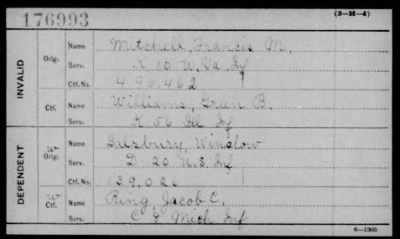 176993
(3-H-4)
INVALID
Orig.
Name Mitchell, Francis M.
Serv. K 20 W. Va Inf
Ctf. No. 490,462
Ctf.
Name Williams, Green B.
Serv. K 56 Ill Inf
DEPENDENT
W Orig.
Name Winslow
Serv. D 20 U.S. Inf
Ctf. No. 139,020
W Ctf.
Name Ring, Jacob C.
Serv. C 8 Mich Inf
6-1380